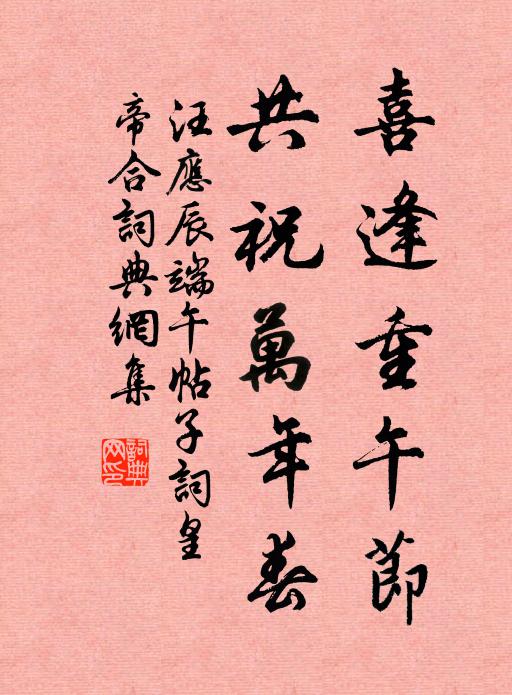 喜逢重午節
共祝萬年春
汪應辰端午帖子詞皇
帝合詞典網集
詞典網印